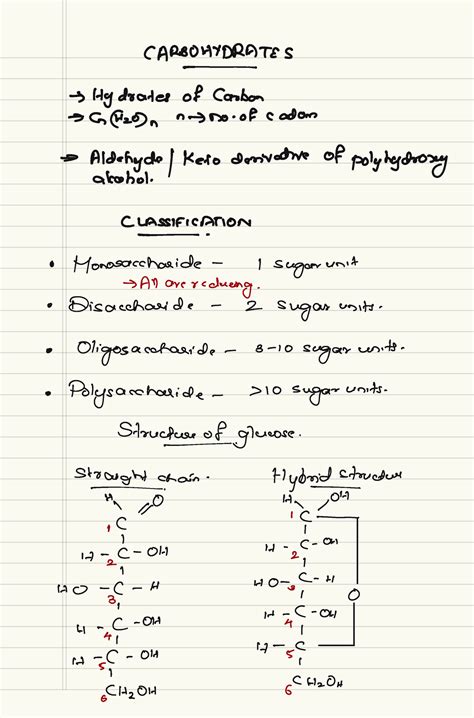 CARBOHYDRATES
→ Hydrates of Carbon
→ Cn(H2O)n n→no. of codom
→ Aldehyde / Keto derivative of polyhydroxy
alcohol.
CLASSIFICATION
• Monosaccharide – 1 sugar unit
→ All are reducing.
• Disaccharide – 2 sugar units.
• Oligosaccharide – 3-10 sugar units.
• Polysaccharide – >10 sugar units.
Structure of glucose.
Straight chain. Hybrid structure
H O H OH
1 C 1 C
H – C – OH H – C – OH
2 2
HO – C – H HO – C – H O
3 3
H – C – OH H – C – OH
4 4
H – C – OH H – C
5 5
6 CH2OH 6 CH2OH